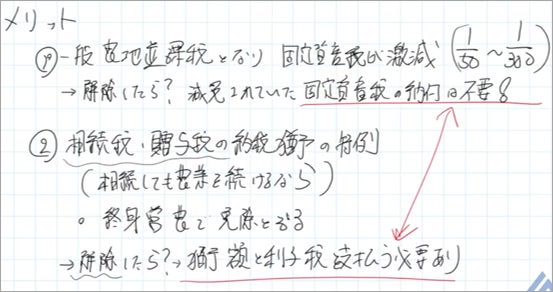 メリット
① 一般農地並課税となり 固定資産税が激減 (1/50 ~ 1/300)
→ 解除したら? 減免されていた 固定資産税の納付は不要。
② 相続税・贈与税の納税猶予の特例
(相続しても農業を続けるなら)
○ 終身営農で免除となる
→ 解除したら? → 猶予額と利子税支払う必要あり